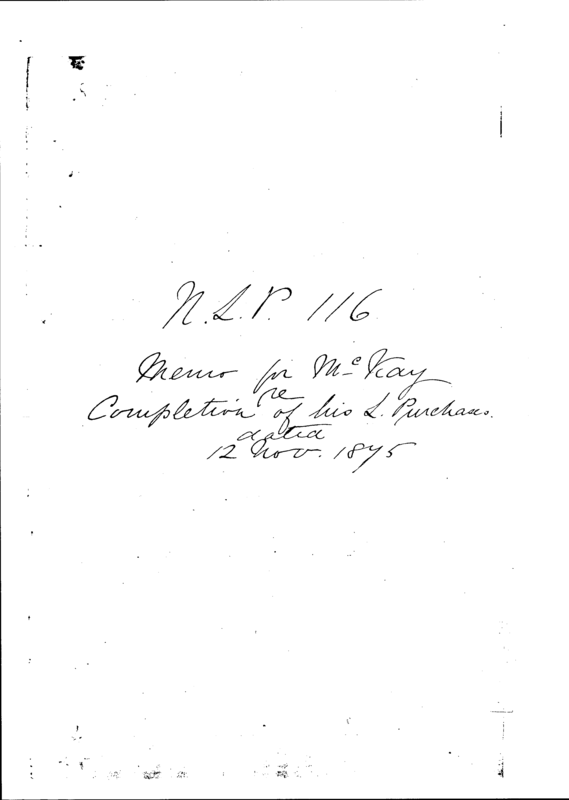 N.L.P. 116
Memo for McKay
re
Completion of his L. Purchases.
dated
12 Nov. 1875